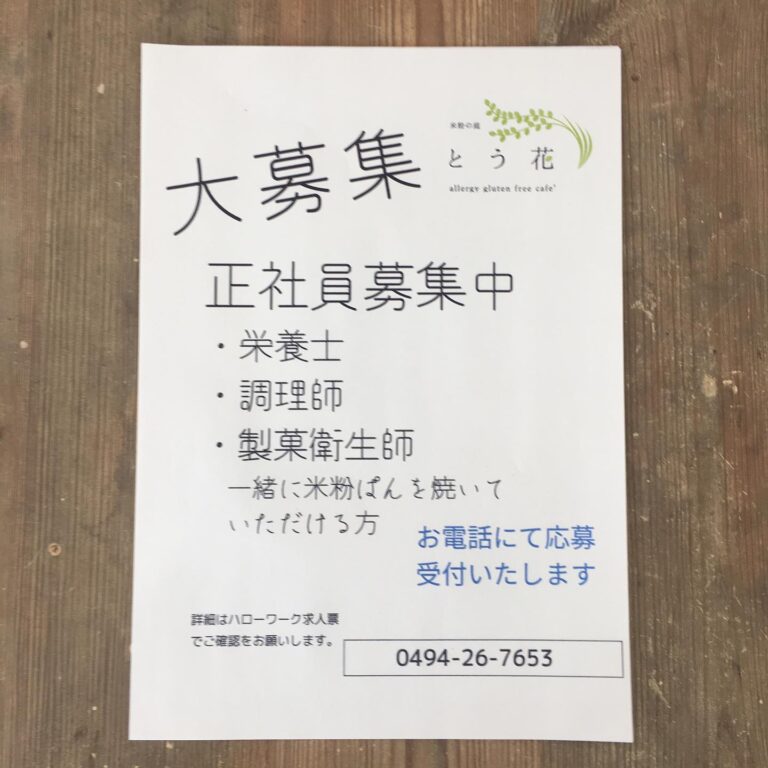 大募集
米粉の庭
とう花
allergy gluten free cafe'
正社員募集中
・栄養士
・調理師
・製菓衛生師
一緒に米粉ぱんを焼いて
いただける方
お電話にて応募
受付いたします
詳細はハローワーク求人票
でご確認をお願いします。
0494-26-7653